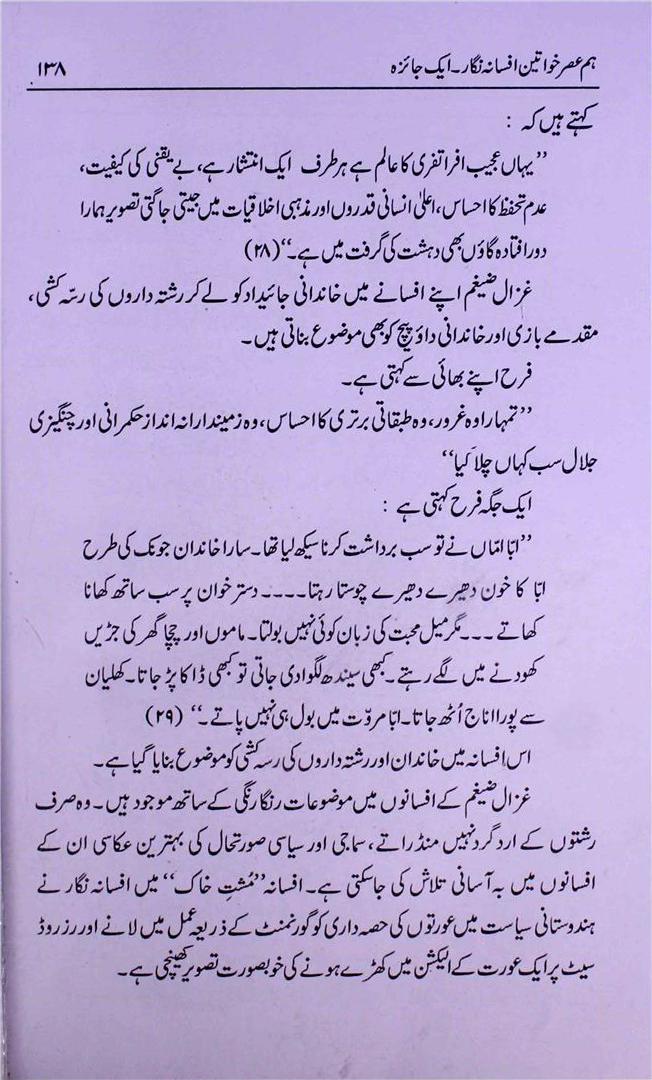 ہم عصر خواتین افسانہ نگار۔ ایک جائزہ ۱۳۸
کہتے ہیں کہ :
”یہاں عجیب افراتفری کا عالم ہے ہر طرف ایک انتشار ہے، بے یقنی کی کیفیت،
عدم تحفظ کا احساس، اعلیٰ انسانی قدروں اور مذہبی اخلاقیات میں جیتی جاگتی تصویر ہمارا
دور افتادہ گاؤں بھی دہشت کی گرفت میں ہے۔“ (۲۸)
غزال ضیغم اپنے افسانے میں خاندانی جائیداد کو لے کر رشتہ داروں کی رسّہ کشی،
مقدمے بازی اور خاندانی داؤ پیچ کو بھی موضوع بناتی ہیں۔
فرح اپنے بھائی سے کہتی ہے۔
”تمہارا وہ غرور، وہ طبقاتی برتری کا احساس، وہ زمیندارانہ انداز حکمرانی اور چنگیزی
جلال سب کہاں چلا گیا“
ایک جگہ فرح کہتی ہے :
”ابّا امّاں نے تو سب برداشت کرنا سیکھ لیا تھا۔ سارا خاندان جونک کی طرح
ابّا کا خون دھیرے دھیرے چوستا رہتا۔۔۔۔ دسترخوان پر سب ساتھ کھانا
کھاتے ۔۔۔ مگر میل محبت کی زبان کوئی نہیں بولتا۔ ماموں اور چچا گھر کی جڑیں
کھودنے میں لگے رہتے۔ کبھی سیندھ لگوا دی جاتی تو کبھی ڈاکا پڑ جاتا۔ کھلیان
سے پورا اناج اُٹھ جاتا۔ ابّا مروّت میں بول ہی نہیں پاتے۔“ (۲۹)
اس افسانہ میں خاندان اور رشتہ داروں کی رسہ کشی کو موضوع بنایا گیا ہے۔
غزال ضیغم کے افسانوں میں موضوعات رنگا رنگی کے ساتھ موجود ہیں۔ وہ صرف
رشتوں کے ارد گرد نہیں منڈراتے، سماجی اور سیاسی صورتحال کی بہترین عکاسی ان کے
افسانوں میں بہ آسانی تلاش کی جاسکتی ہے۔ افسانہ ”مُشتِ خاک“ میں افسانہ نگار نے
ہندوستانی سیاست میں عورتوں کی حصہ داری کو گورنمنٹ کے ذریعہ عمل میں لانے اور رزروڈ
سیٹ پر ایک عورت کے الیکشن میں کھڑے ہونے کی خوبصورت تصویر کھینچی ہے۔